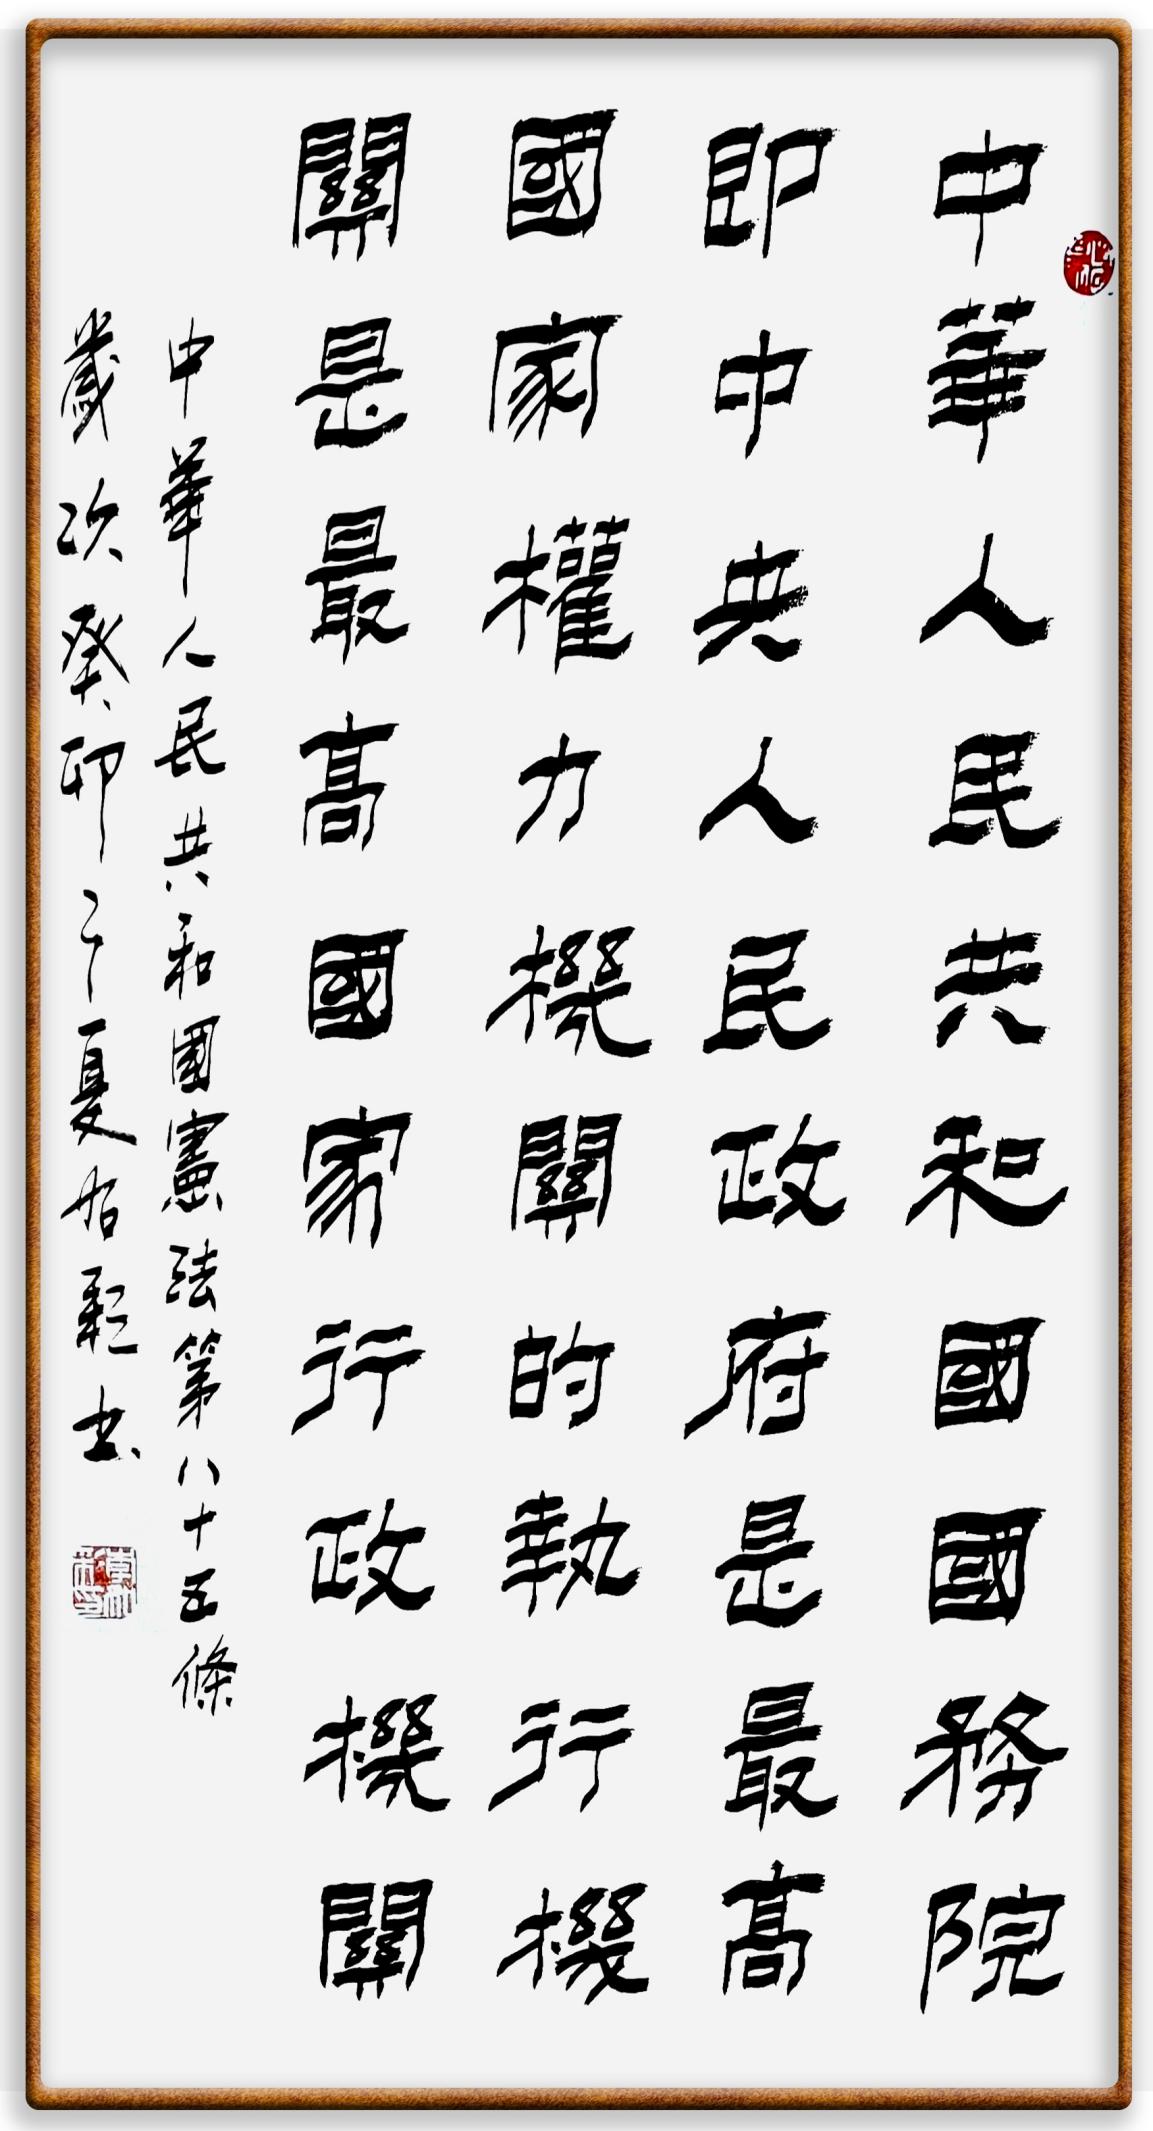 中華人民共和國國務院
即中央人民政府是最高
國家權力機關的執行機
關是最高國家行政機關
中華人民共和國憲法第八十五條
歲次癸卯之夏書